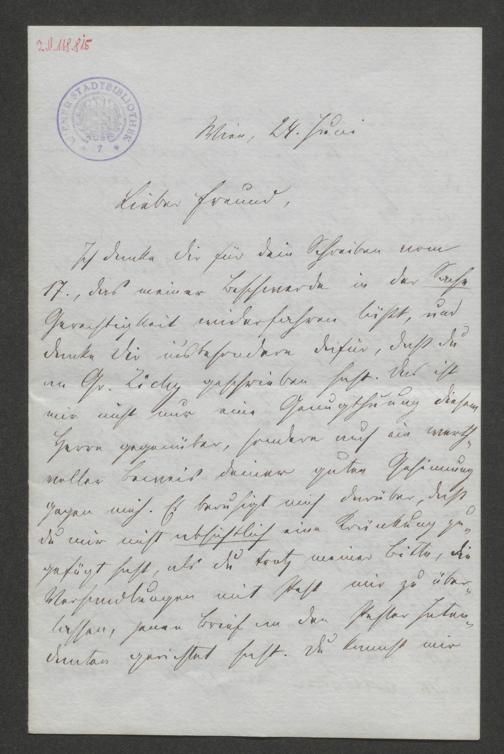 Wien, 24. Juni
Lieber Freund,
Ich danke Dir für dein Schreiben vom
17., das meiner Beschwerde in der Sache
Gerechtigkeit widerfahren läßt, und
danke Dir insbesondere dafür, daß du
an Gr. Zichy geschrieben hast. Das ist
mir nicht nur eine Genugthuung diesem
Herrn gegenüber, sondern auch ein werth-
voller Beweis deiner guten Gesinnung
gegen mich. Es beruhigt mich darüber, daß
du mir nicht absichtlich eine Kränkung zu-
gefügt hast, als du trotz meiner Bitte, die
Verhandlungen mit Pest mir zu über-
lassen, jenen Brief an den Pester Inten-
danten gerichtet hast. Du kannst mir